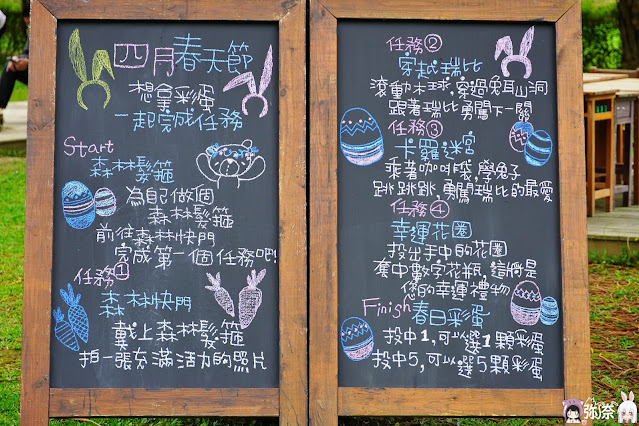 四月春天節
想拿彩蛋
一起完成任務
Start
森林髮箍
為自己做個
森林髮箍
前往森林快門
完成第一個任務吧!
任務①
森林快門
戴上森林髮箍
拍一張充滿活力的照片
任務②
穿越瑞比
滾動木球,穿過兔耳山洞
跟著瑞比勇闖下一關
任務③
卡羅迷宮
乘著咖啡袋,學兔子
跳跳跳,勇闖瑞比的最愛
任務④
幸運花圈
投出手中的花圈
套中數字花瓶,這將是
您的幸運禮物
Finish
春日彩蛋
投中1,可以選1顆彩蛋
投中5,可以選5顆彩蛋
弥奈